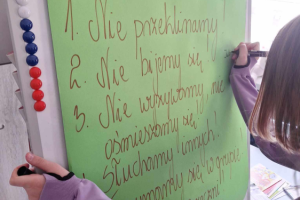 1. Nie przeklinamy
2. Nie bijemy się
3. Nie wyzywamy, nie
ośmieszamy się
Słuchamy innych!
się w grupie